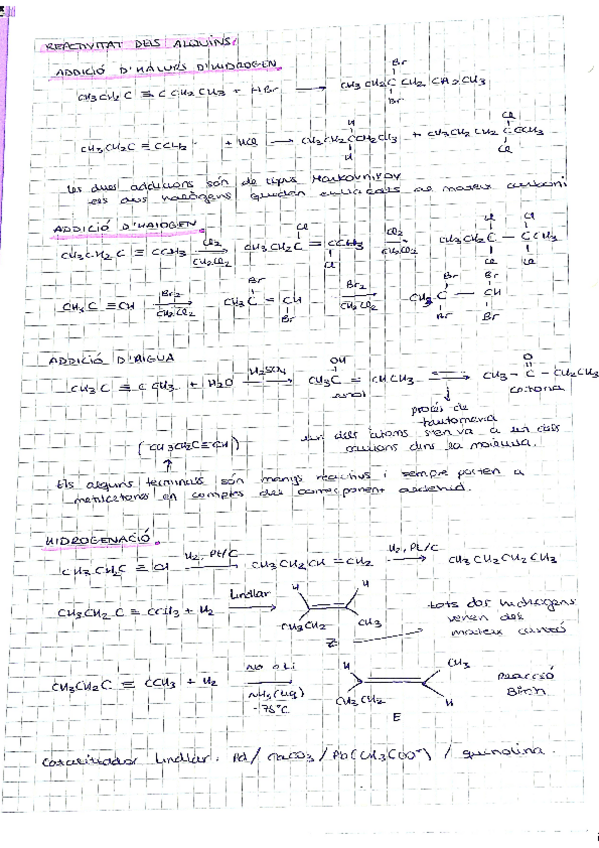 REACTIVITAT DELS ALQUINS.
ADDICIÓ D'HALURS D'HIDROGEN.
CH3CH2C ≡ CCH2CH3 + HBr → CH3CH2CCH2CH2CH3
Br
Br
CH3CH2C ≡ CCH3 + HCl → CH3CH2CCH2CH3 + CH3CH2CH2CCH3
H
H
Cl
Cl
Les dues addicions són de tipus Markovnikov
els dos halògens queden enllaçats al mateix carboni
ADDICIÓ D'HALOGEN.
CH3CH2C ≡ CCH3 Cl2 CH2Cl2 → CH3CH2C = CCH3 Cl2 CH2Cl2 → CH3CH2C — CCH3
Cl
Cl
Cl Cl
Cl Cl
CH3C ≡ CH Br2 CH2Cl2 → CH3C = CH Br2 CH2Cl2 → CH3C — CH
Br
Br
Br Br
Br Br
ADDICIÓ D'AIGUA
CH3C ≡ CCH3 + H2O H2SO4 → CH3C = CHCH3 ⇌ CH3 - C - CH2CH3
OH
O
enol
cetona
procés de
tautomeria
un dels àtoms s'en va a un altre
dins la molècula.
(CH3CH2C≡CH)
Els alquins terminals són menys reactius i sempre porten a
metilcetones en comptes del corresponent aldehid.
HIDROGENACIÓ.
CH3CH2C ≡ CH H2, Pt/C → CH3CH2CH = CH2 H2, Pt/C → CH3CH2CH2CH3
CH3CH2C ≡ CCH3 + H2 Lindlar →
H H
CH3CH2 CH3
Z
tots dos hidrogens
venen del
mateix cantó
CH3CH2C ≡ CCH3 + H2 Na o Li NH3 (liq) -78°C →
H CH3
CH3CH2 H
E
Reacció
Birch
Catalitzador Lindlar. Pd/CaCO3/Pb(CH3COO-)/quinolina.